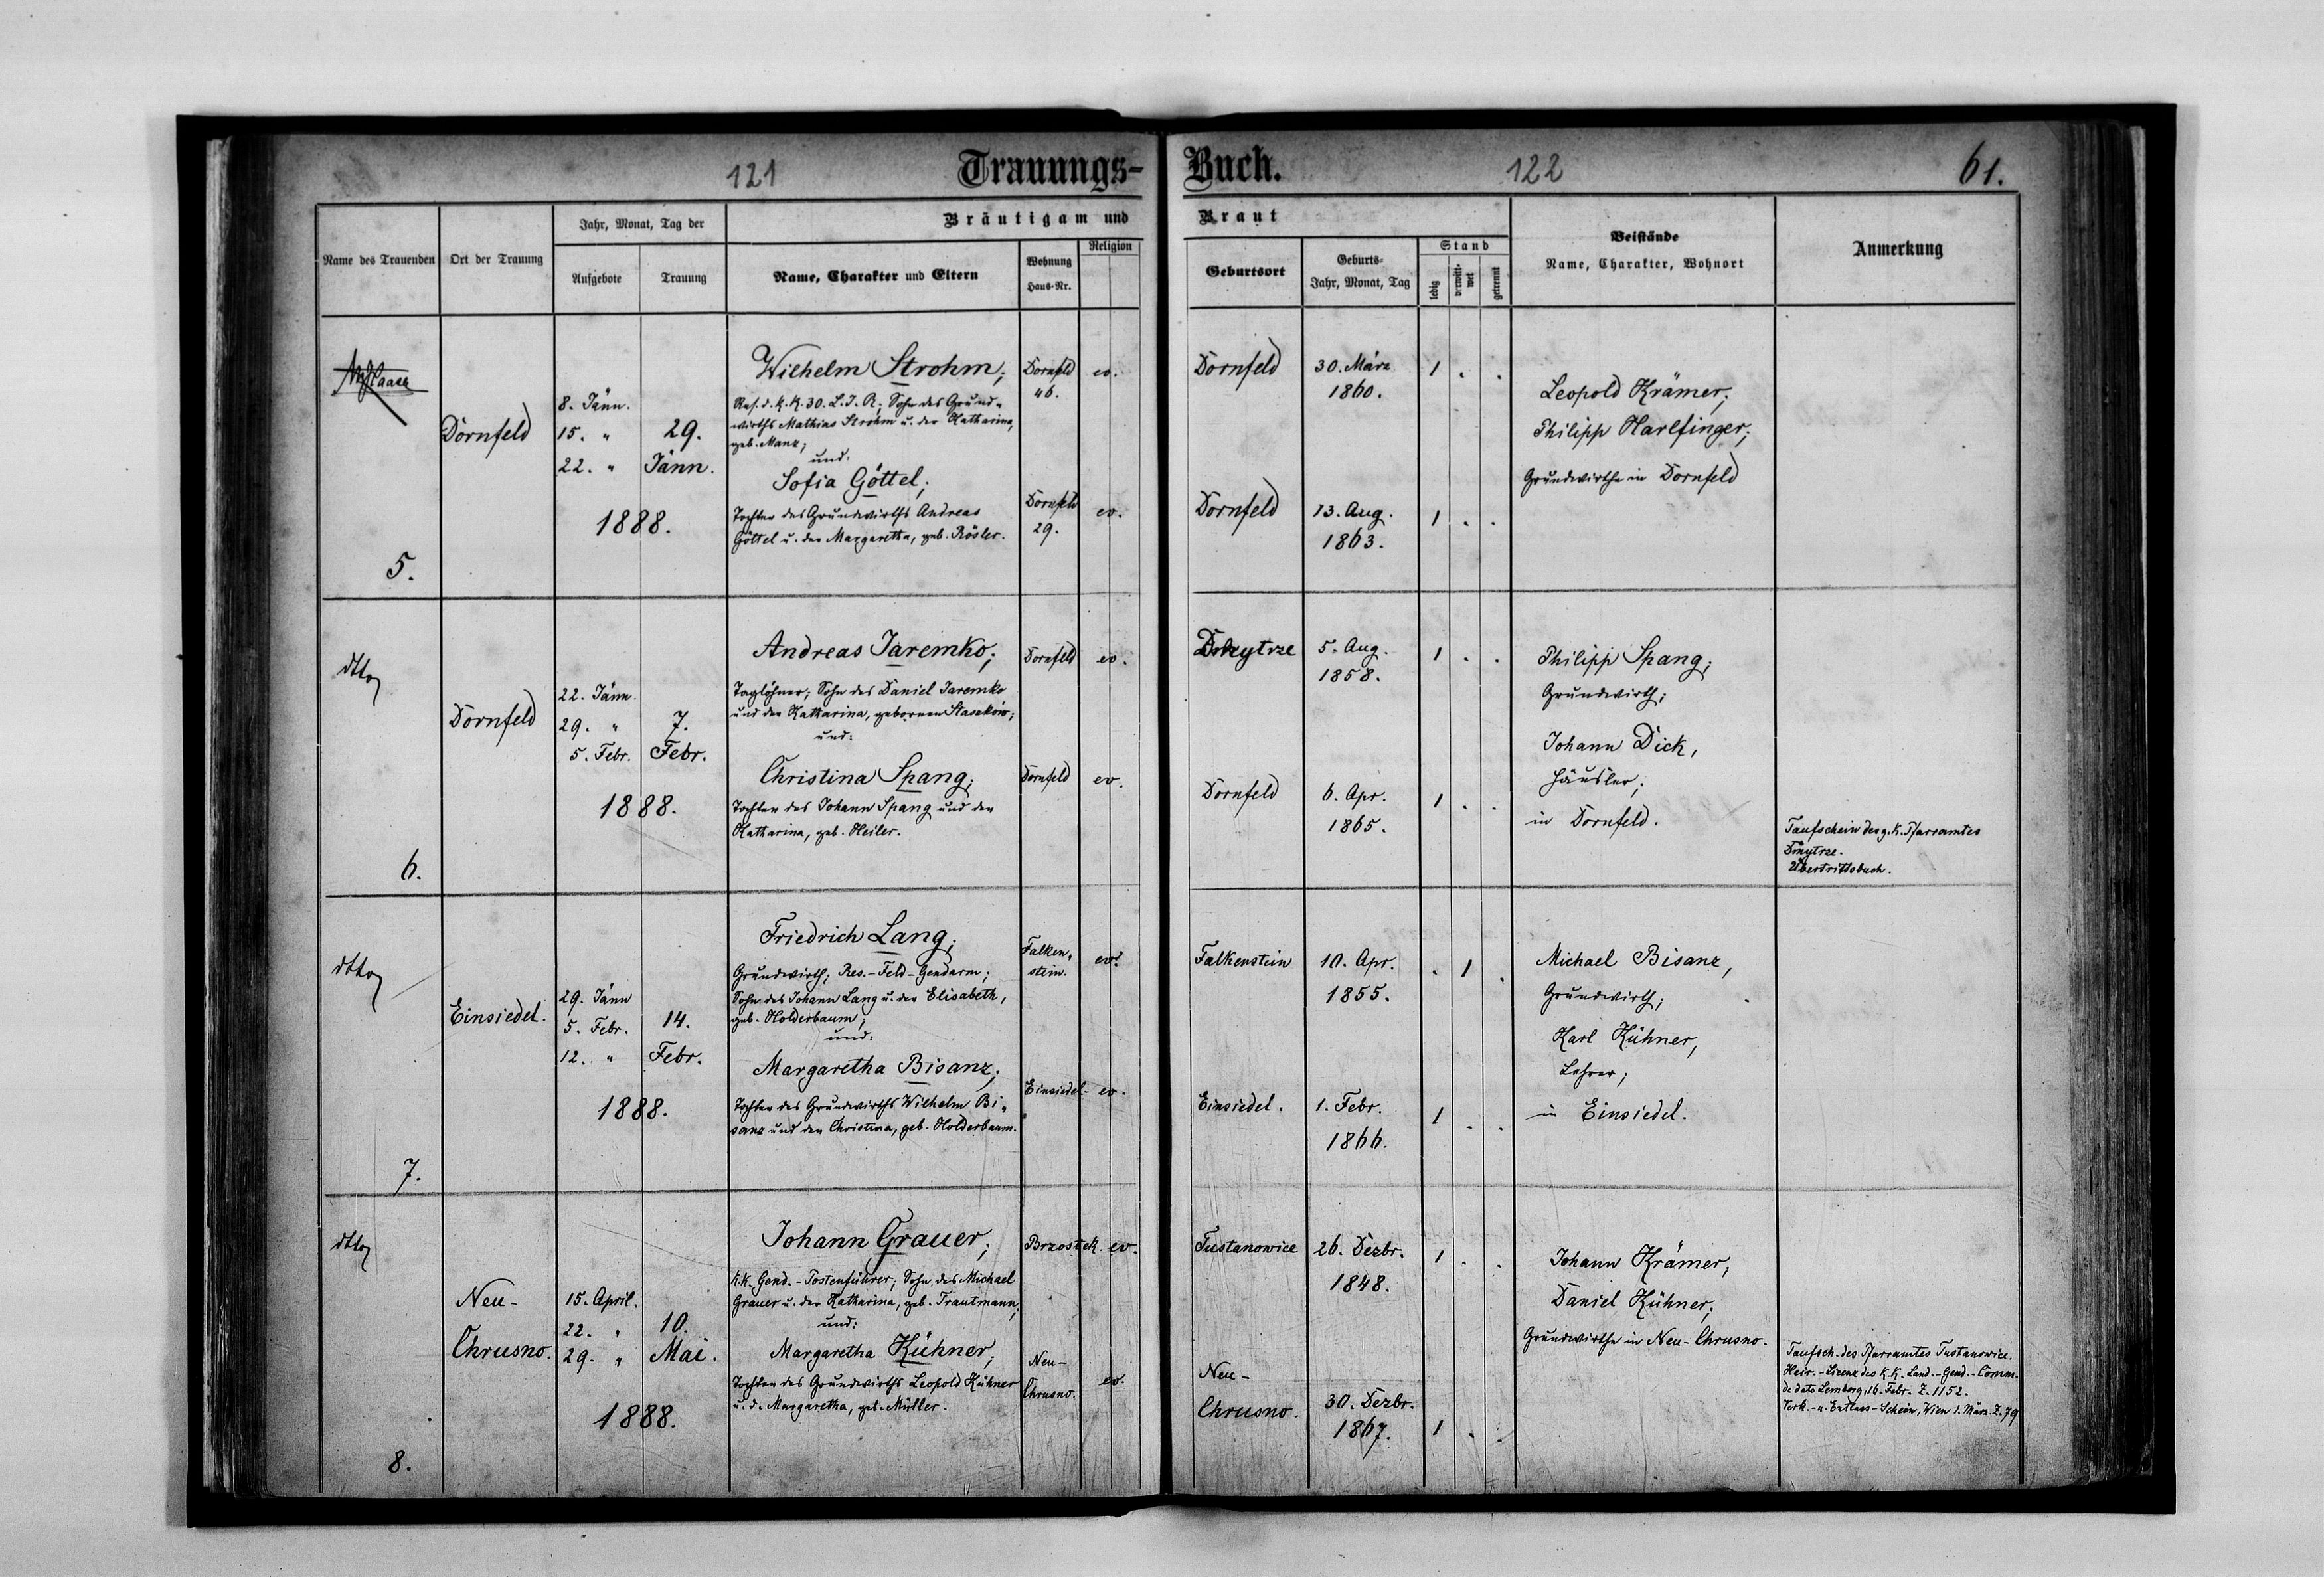 121
Trauungs-
Buch.
122
61.
Name des Trauenden
Ort der Trauung
Jahr, Monat, Tag der
Aufgebote
Trauung
Bräutigam und
Name, Charakter und Eltern
Wohnung
Haus-Nr.
Religion
Braut
Geburtsort
Geburts-
Jahr, Monat, Tag
Stand
ledig
verwitt-
wet
getrennt
Beistände
Name, Charakter, Wohnort
Anmerkung
5.
Dornfeld
8. Jänn.
15. "
22. "
29.
Jänn.
1888.
Wilhelm Strohm;
Res. d. k. k. 30. L. I. R.; Sohn des Grund-
wirths Mathias Strohm u. der Katharina,
geb. Manz;
und:
Sofia Göttel;
Tochter des Grundwirths Andreas
Göttel u. der Margaretha, geb. Rösler.
Dornfeld
46.
ev.
Dornfeld
29.
ev.
Dornfeld
30. März
1860.
1 . .
Dornfeld
13. Aug.
1863.
1 . .
Leopold Krämer;
Philipp Harlfinger;
Grundwirthe in Dornfeld
dtto
6.
Dornfeld
22. Jänn.
29. "
5. Febr.
7.
Febr.
1888.
Andreas Jaremko;
Taglöhner; Sohn des Daniel Jaremko
und der Katharina, gebornen Stasekow;
und:
Christina Spang;
Tochter des Johann Spang und der
Katharina, geb. Heiler.
Dornfeld
ev.
Dornfeld
ev.
5. Aug.
1858.
1 . .
Dornfeld
6. Apr.
1865.
1 . .
Philipp Spang;
Grundwirth;
Johann Dick,
Häusler;
in Dornfeld.
Taufschein des g. k. Pfarramtes
Dmytrze.
Übertrittsbuch.
dtto
7.
Einsiedel.
29. Jänn
5. Febr.
12. "
14.
Febr.
1888.
Friedrich Lang;
Grundwirth; Res.-Feld-Gendarm;
Sohn des Johann Lang u. der Elisabeth,
geb. Holderbaum;
und:
Margaretha Bisanz;
Tochter des Grundwirths Wilhelm Bi-
sanz und der Christina, geb. Holderbaum.
Falken-
stein.
ev.
Einsiedel.
ev.
Falkenstein
10. Apr.
1855.
. 1 .
Einsiedel.
1. Febr.
1866.
1 . .
Michael Bisanz,
Grundwirth;
Karl Kühner,
Lehrer;
in Einsiedel.
dtto
8.
Neu-
Chrusno.
15. April.
22. "
29. "
10.
Mai.
1888.
Johann Grauer;
k. k. Gend.-Postenführer; Sohn des Michael
Grauer u. der Katharina, geb. Trautmann;
und:
Margaretha Kühner;
Tochter des Grundwirths Leopold Kühner
u. d. Margaretha, geb. Müller.
Brzostek.
ev.
Neu-
Chrusno.
ev.
Tustanowice
26. Dezbr.
1848.
1 . .
Neu-
Chrusno.
30. Dezbr.
1867.
1 . .
Johann Krämer;
Daniel Kühner;
Grundwirthe in Neu-Chrusno.
Taufsch. des Pfarramtes Tustanowice.
Heir.-Lizenz des k. k. Land.-Gend.-Comm.
de dato Lemberg, 16. Febr. Z. 1152.
Verk.-u. Entlass-Schein, Wien 1. März Z. 79